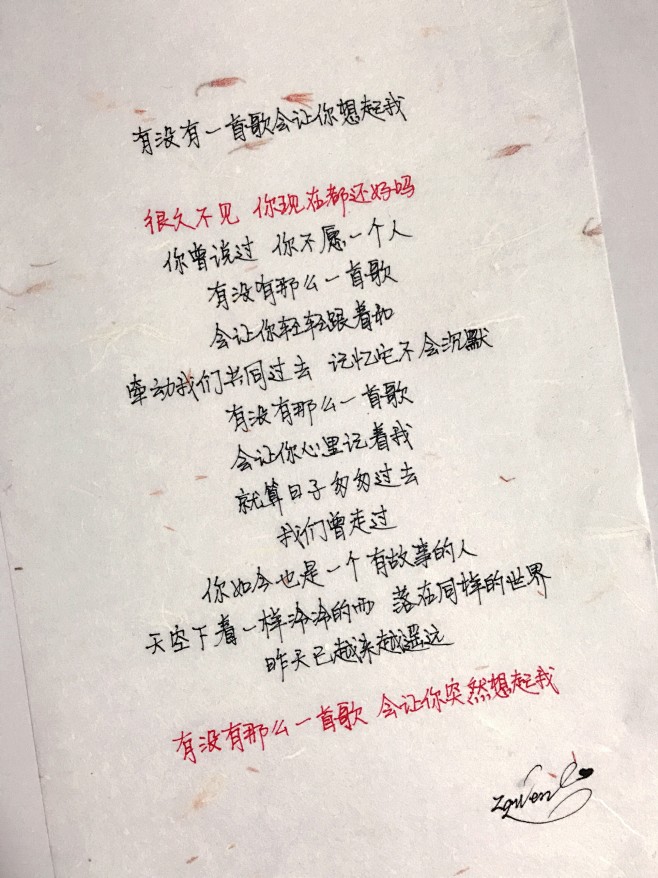 有没有一首歌会让你想起我
很久不见 你现在都还好吗
你曾说过 你不愿一个人
有没有那么一首歌
会让你轻轻跟着和
牵动我们共同过去 记忆它不会沉默
有没有那么一首歌
会让你心里记着我
就算日子匆匆过去
我们曾走过
你如今也是一个有故事的人
天空下着一样冷冷的雨 落在同样的世界
昨天已越来越遥远
有没有那么一首歌 会让你突然想起我